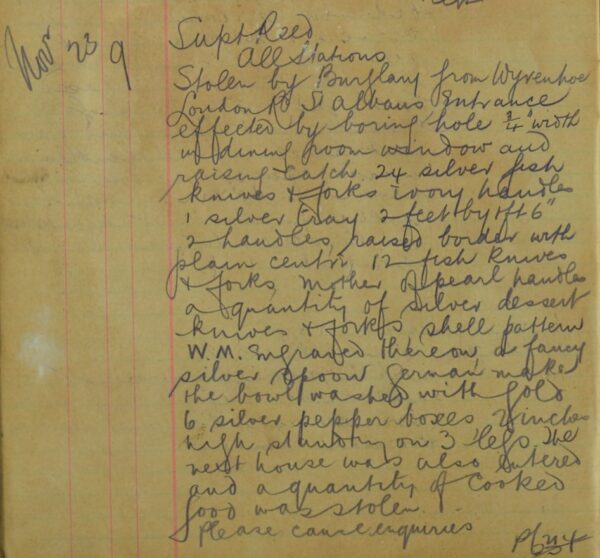 Nov 23 9
Supt Reed
All Stations
Stolen by Burglary from Wyvenhoe
London Rd St Albans Entrance
effected by boring hole ¾" width
in dining room window and
raising catch 24 silver fish
knives & forks ivory handles
1 silver tray 2 feet by 1 ft 6"
2 handles raised border with
plain centre 12 fish knives
& forks mother of pearl handles
a quantity of silver dessert
knives & forks shell pattern
W.M. Engraved thereon a fancy
silver spoon German make
the bowl washed with gold
6 silver pepper boxes 2 inches
high standing on 3 legs The
next house was also entered
and a quantity of cooked
food was stolen.
Please cause enquiries